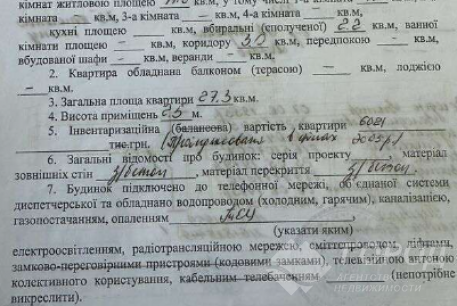 кімнат житловою площею кв.м, у тому числі 1-а кімната
кімната — кв.м, 3-а кімната — кв.м, 4-а кімната — кв.м,
кухні площею кв.м, вбиральні (сполученої) 2.2 кв.м, ванної
кімнати площею — кв.м, коридору 3.0 кв.м, передпокою — кв.м,
вбудованої шафи — кв.м, веранди — кв.м.
2. Квартира обладнана балконом (терасою) — кв.м, лоджією
— кв.м.
3. Загальна площа квартири 27.3 кв.м.
4. Висота приміщень 2.5 м.
5. Інвентаризаційна (балансова) вартість квартири 6021
тис.грн. (
6. Загальні відомості про будинок: серія проекту матеріал
зовнішніх стін з/бетон, матеріал перекриття з/бетон.
7. Будинок підключено до телефонної мережі, об'єднаної системи
диспетчерської та обладнано водопроводом (холодним, гарячим), каналізацією,
газопостачанням, опаленням
(указати яким)
електроосвітленням, радіотрансляційною мережею, сміттєпроводом, ліфтами,
замково-переговорними пристроями (кодовими замками), телевізійною антоною
колективного користування, кабельним телебаченням (непотрібне
викреслити).
АГЕНТСТВО
НЕДВИЖИМОСТИ